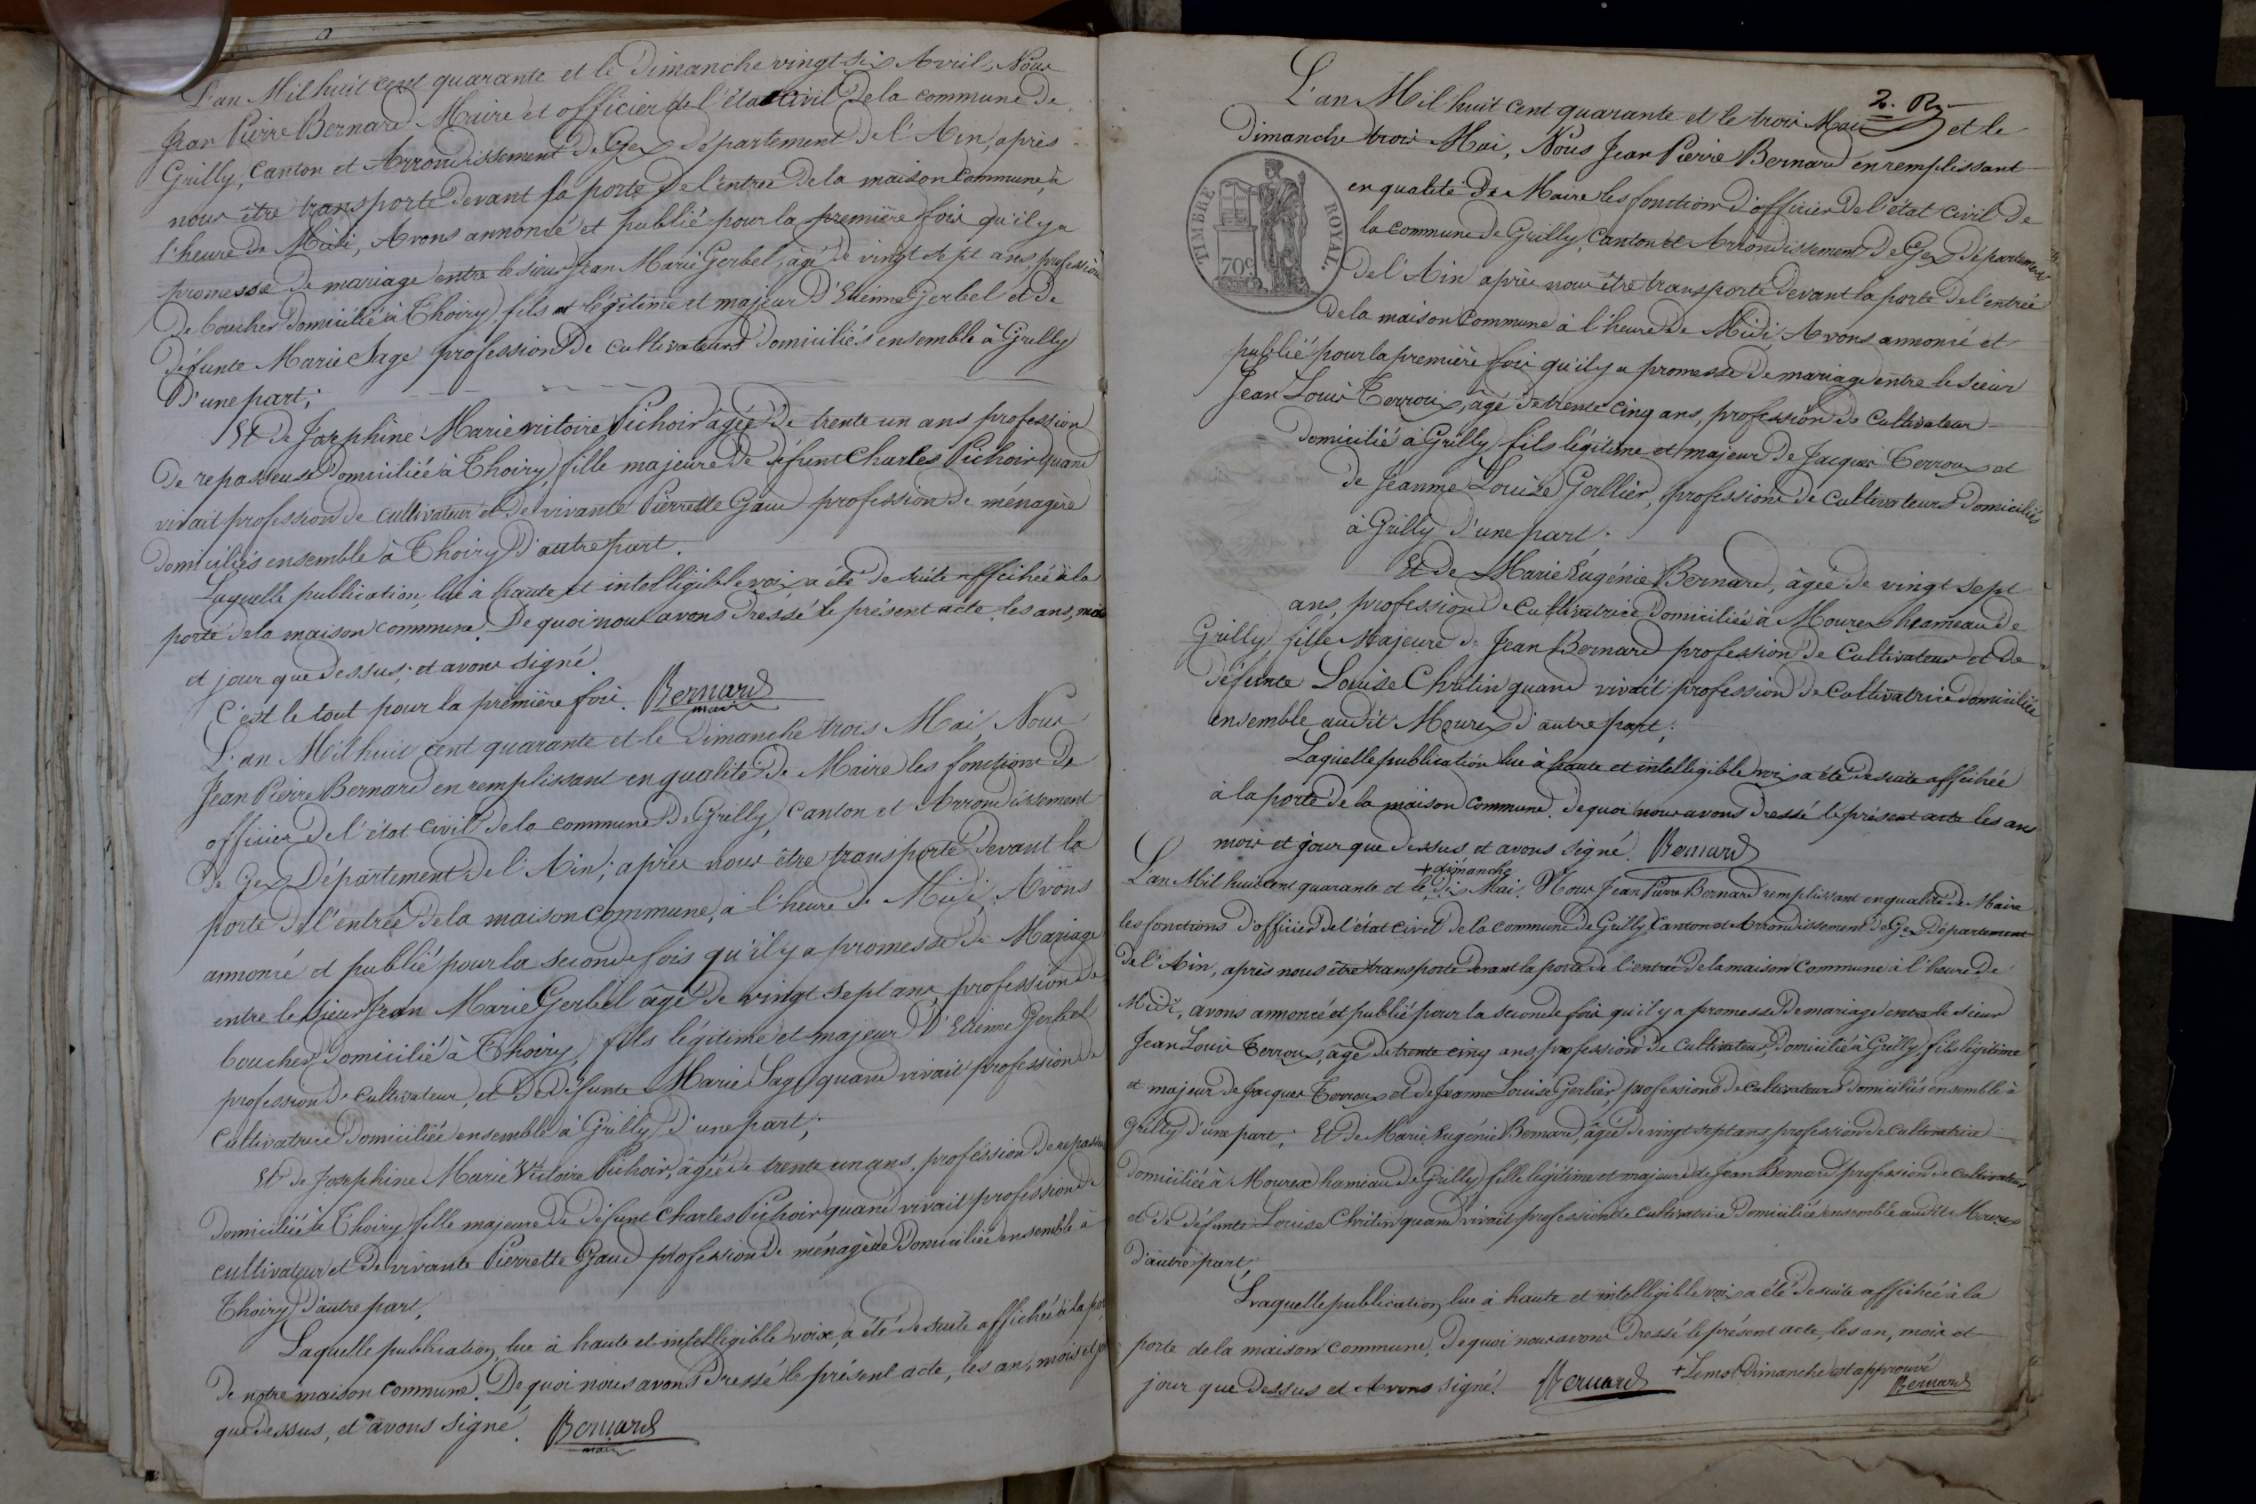 L'an Mil huit cent quarante et le Dimanche vingt six Avril, Nous
Jean Pierre Bernard Maire et officier de l'état civil de la commune de
Grilly, Canton et Arrondissement de Gex département de l'Ain, après
nous être transporté devant la porte de l'entrée de la maison commune, à
l'heure de Midi, Avons annoncé et publié pour la première fois qu'il y a
promesse de mariage entre le sieur Jean Marie Gerbel, âgé de vingt sept ans, profession
de boucher domicilié à Thoiry, fils légitime et majeur d'Etienne Gerbel et de
défunte Marie Sage profession de cultivateurs domiciliés ensemble à Grilly
d'une part;
Et de Josephine Marie Victoire Pichoir âgée de trente un ans profession
de repasseuse domiciliée à Thoiry, fille majeure de défunt Charles Pichoir quand
vivait profession de cultivateur et de vivante Pierrette Gaud profession de ménagère
domiciliés ensemble à Thoiry d'autre part.
Laquelle publication, lue à haute et intelligible voix a été de suite affichée à la
porte de la maison commune. De quoi nous avons dressé le présent acte, les ans, mois
et jour que dessus; et avons signé.
C'est le tout pour la première fois. Bernard
maire
L'an Mil huit cent quarante et le Dimanche trois Mai, Nous
Jean Pierre Bernard en remplissant en qualité de Maire les fonctions de
officier de l'état civil de la commune de Grilly, Canton et Arrondissement
de Gex Département de l'Ain; après nous être transporté devant la
porte de l'entrée de la maison commune, à l'heure de Midi, Avons
annoncé et publié pour la seconde fois qu'il y a promesse de Mariage
entre le sieur Jean Marie Gerbel âgé de vingt sept ans, profession de
boucher domicilié à Thoiry, fils légitime et majeur d'Etienne Gerbel
profession de cultivateur, et de défunte Marie Sage quand vivait profession de
cultivatrice domiciliée ensemble à Grilly d'une part;
Et de Josephine Marie Victoire Pichoir, âgée de trente un ans, profession de repasseuse
domiciliée à Thoiry fille majeure de défunt Charles Pichoir quand vivait profession de
cultivateur et de vivante Pierrette Gaud profession de ménagère domiciliée ensemble à
Thoiry d'autre part,
Laquelle publication, lue à haute et intelligible voix, a été de suite affichée à la por
de notre maison commune. De quoi nous avons dressé le présent acte, les an, mois et jo
que dessus, et avons signé. Bernard
maire
2. R
L'an Mil huit cent quarante et le trois Mai et le
dimanche trois Mai, Nous Jean Pierre Bernard en remplissant
en qualité de Maire les fonction d'officier de l'état civil de
la commune de Grilly, Canton et Arrondissement de Gex département
de l'Ain après nous être transporté devant la porte de l'entrée
de la maison commune à l'heure de Midi, Avons annoncé et
TIMBRE ROYAL.
70c
publié pour la première fois qu'il y a promesse de mariage entre le sieur
Jean Louis Terroux, âgé de trente cinq ans, profession de cultivateur
domicilié à Grilly fils légitime et majeur de Jacques Terroux et
de Jeanne Louise Gerllier, professions de cultivateurs domiciliés
à Grilly d'une part.
Et de Marie Eugénie Bernard, âgée de vingt sept
ans, profession de cultivatrice domiciliée à Mourex hameau de
Grilly, fille Majeure de Jean Bernard profession de Cultivateur et de
défunte Louise Chrilin quand vivait profession de Cultivatrice domiciliée
ensemble audit Mourex d'autre part;
Laquelle publication lue à haute et intelligible voix a été de suite affichée
à la porte de la maison commune. De quoi nous avons dressé le présent acte les ans
mois et jour que dessus et avons signé. Bernard
+ dimanche
L'an Mil huit cent quarante et le dix Mai. Nous Jean Pierre Bernard remplissant en qualité de Maire
les fonctions d'officier de l'état civil de la commune de Grilly Canton et Arrondissement de Gex département
de l'Ain, après nous être transporté devant la porte de l'entrée de la maison commune à l'heure de
Midi, avons annoncé et publié pour la seconde fois qu'il y a promesse de mariage entre le sieur
Jean Louis Terroux, âgé de trente cinq ans, profession de cultivateur, domicilié à Grilly fils légitime
et majeur de Jacques Terroux et de Jeanne Louise Gerlier, professions de cultivateurs domiciliés ensemble à
Grilly d'une part; Et de Marie Eugénie Bernard, âgée de vingt sept ans, profession de cultivatrice
domiciliée à Mourex hameau de Grilly fille légitime et majeure de Jean Bernard profession de cultivateur
et de défunte Louise Chrilin quand vivait profession de cultivatrice domiciliée ensemble audit Mourex
d'autre part,
Laquelle publication, lue à haute et intelligible voix a été de suite affichée à la
porte de la maison commune. De quoi nous avons dressé le présent acte, les an, mois et
jour que dessus et Avons signé. Bernard + Le mot Dimanche est approuvé
Bernard